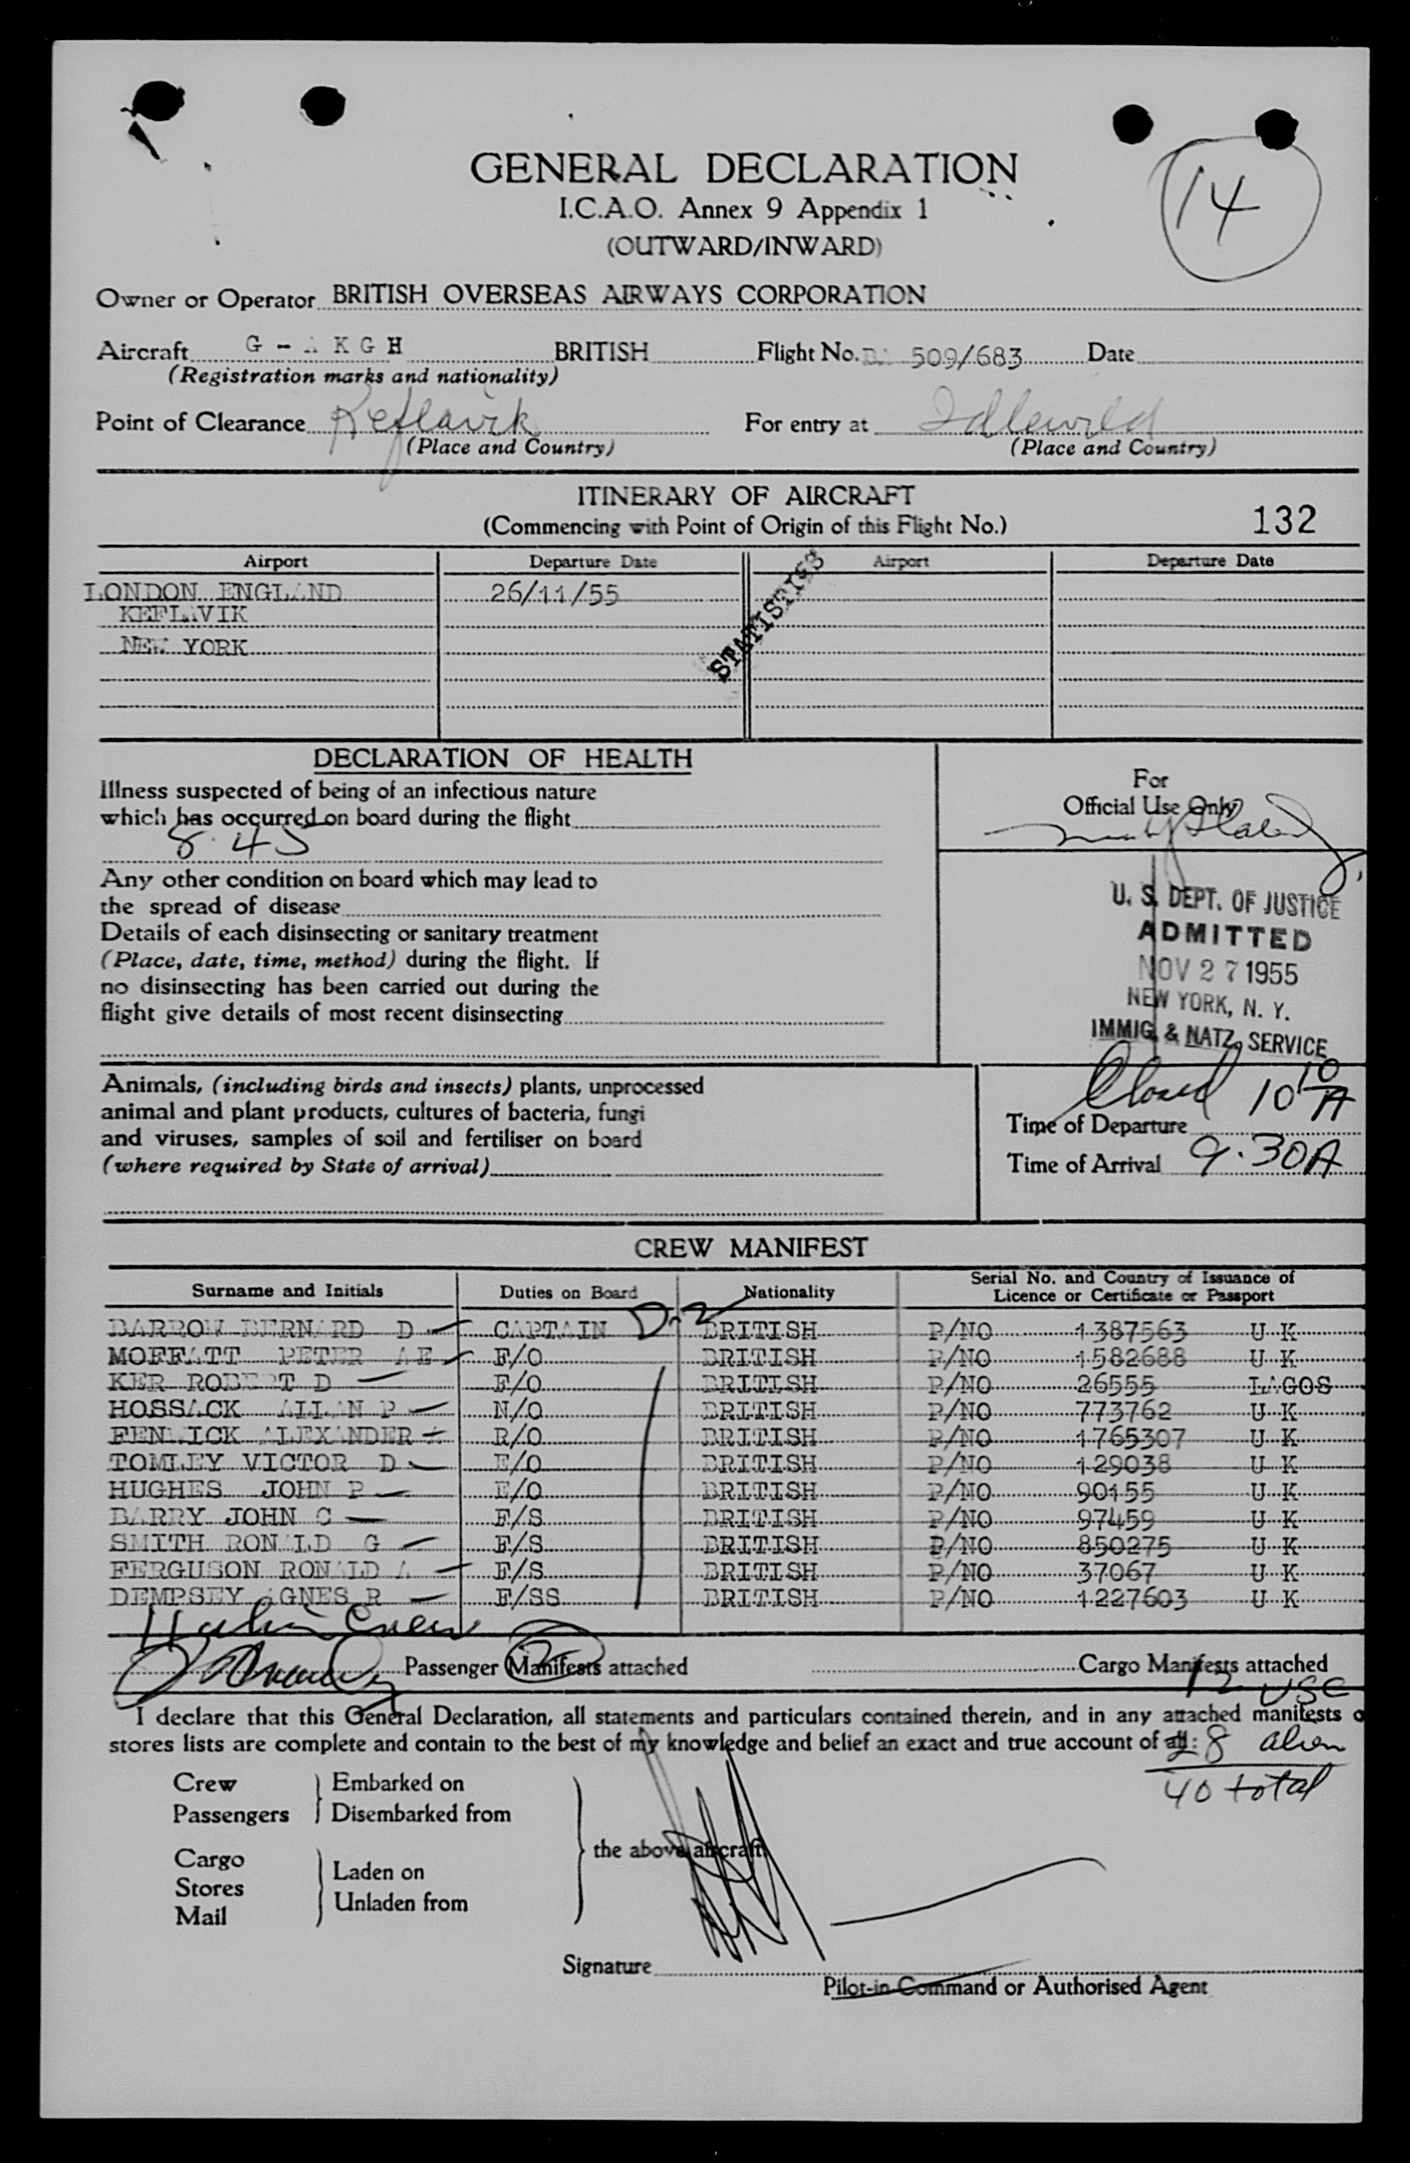 14
GENERAL DECLARATION
I.C.A.O. Annex 9 Appendix 1
(OUTWARD/INWARD)
Owner or Operator BRITISH OVERSEAS AIRWAYS CORPORATION
Aircraft G - A K G H BRITISH Flight No. BA 509/683 Date
(Registration marks and nationality)
Point of Clearance Keflavik For entry at Idlewild
(Place and Country) (Place and Country)
ITINERARY OF AIRCRAFT
(Commencing with Point of Origin of this Flight No.) 132
Airport Departure Date Airport Departure Date
LONDON ENGLAND 26/11/55
KEFLAVIK
NEW YORK
STATISTICS
DECLARATION OF HEALTH
Illness suspected of being of an infectious nature
which has occurred on board during the flight
8.45
Any other condition on board which may lead to
the spread of disease
Details of each disinsecting or sanitary treatment
(Place, date, time, method) during the flight. If
no disinsecting has been carried out during the
flight give details of most recent disinsecting
For
Official Use Only
U. S. DEPT. OF JUSTICE
ADMITTED
NOV 27 1955
NEW YORK, N. Y.
IMMIG. & NATZ. SERVICE
Animals, (including birds and insects) plants, unprocessed
animal and plant products, cultures of bacteria, fungi
and viruses, samples of soil and fertiliser on board
(where required by State of arrival)
Closed 10 10 A
Time of Departure
Time of Arrival 9.30A
CREW MANIFEST
Surname and Initials Duties on Board Nationality Serial No. and Country of Issuance of
Licence or Certificate or Passport
BARROW BERNARD D CAPTAIN BRITISH P/NO 1387563 U K
MOFFATT PETER AE F/O BRITISH P/NO 1582688 U K
KER ROBERT D F/O BRITISH P/NO 26555 LAGOS
HOSSACK ALLAN P N/O BRITISH P/NO 773762 U K
FENWICK ALEXANDER R/O BRITISH P/NO 1765307 U K
TOMLEY VICTOR D E/O BRITISH P/NO 129038 U K
HUGHES JOHN P E/O BRITISH P/NO 90155 U K
BARRY JOHN C F/S BRITISH P/NO 97459 U K
SMITH RONALD G F/S BRITISH P/NO 850275 U K
FERGUSON RONALD A F/S BRITISH P/NO 37067 U K
DEMPSEY AGNES R F/SS BRITISH P/NO 1227603 U K
Passenger Manifests attached Cargo Manifests attached
12 USC
I declare that this General Declaration, all statements and particulars contained therein, and in any attached manifests o
stores lists are complete and contain to the best of my knowledge and belief an exact and true account of all:
28 alien
40 total
Crew Embarked on
Passengers Disembarked from
the above aircraft
Cargo
Stores Laden on
Mail Unladen from
Signature
Pilot-in-Command or Authorised Agent